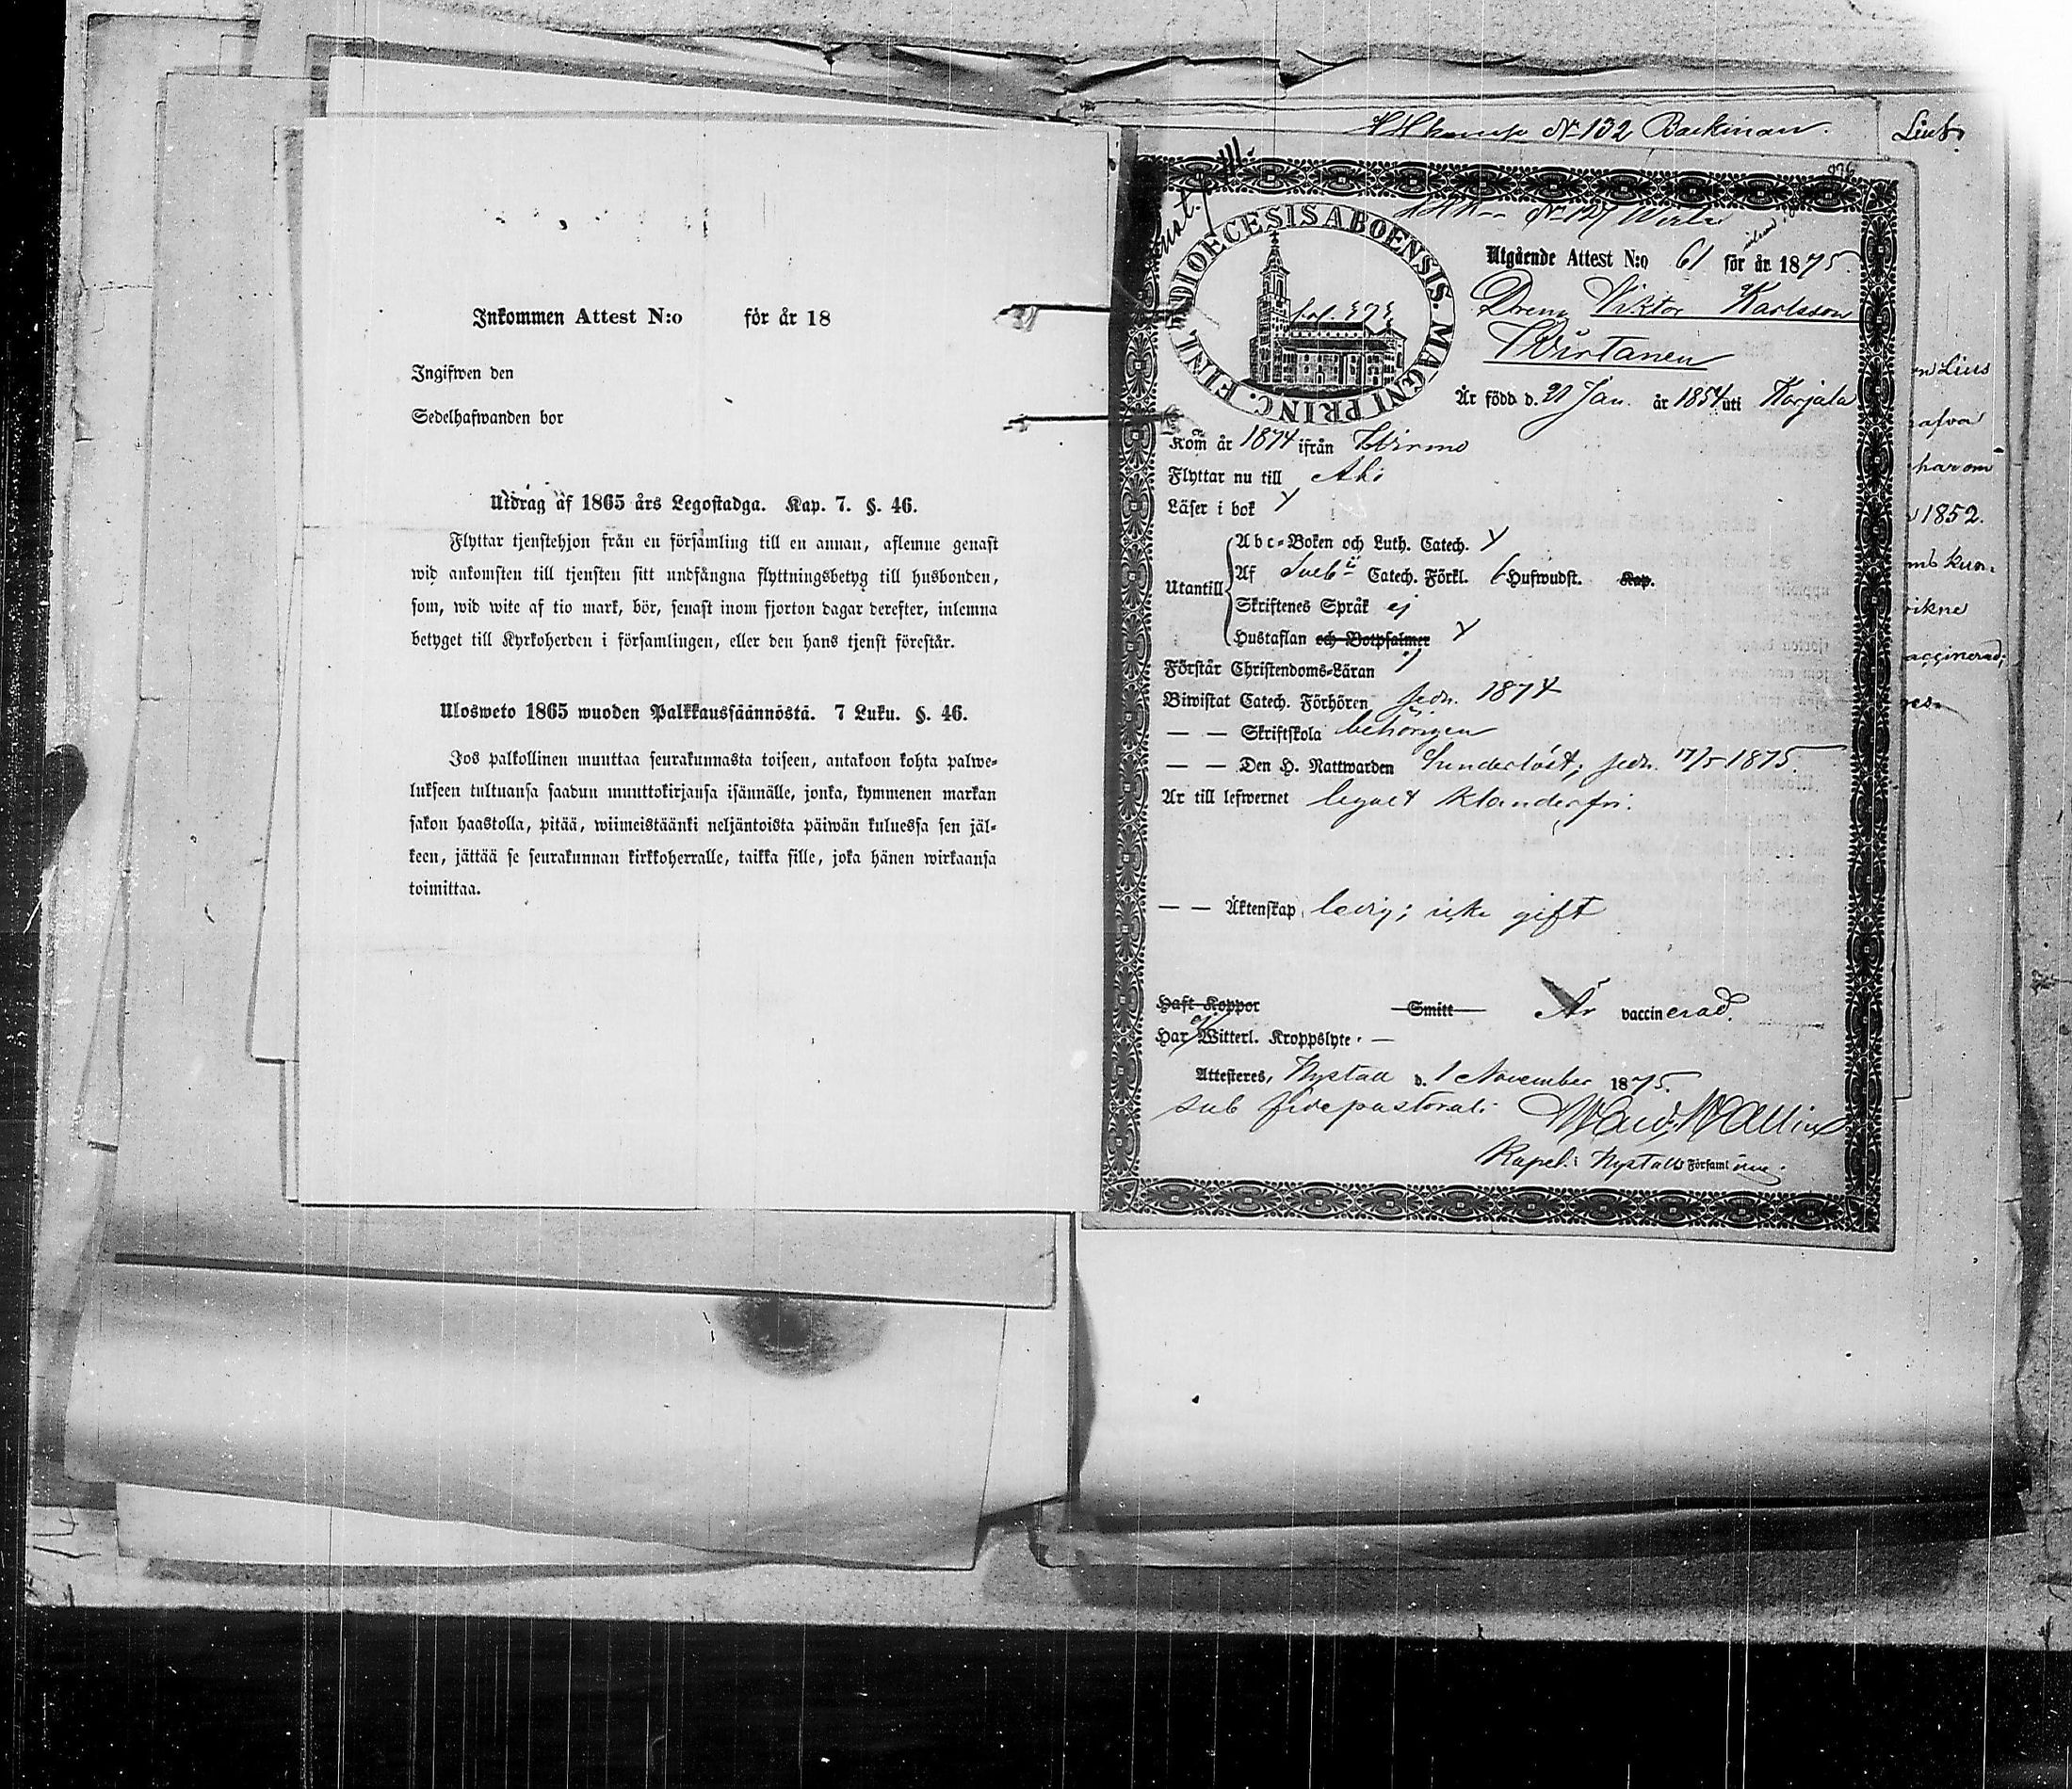 Inkommen Attest N:o för år 18
Ingifwen den
Sedelhafwanden bor
Utdrag af 1865 års Legostadga. Kap. 7. §. 46.
Flyttar tjenstehjon från en församling till en annan, aflemne genast
wid ankomsten till tjensten sitt undfångna flyttningsbetyg till husbonden,
som, wid wite af tio mark, bör, senast inom fjorton dagar derefter, inlemna
betyget till Kyrkoherden i församlingen, eller den hans tjenst förestår.
Ulosweto 1865 wuoden Palkkaussäännöstä. 7 Luku. §. 46.
Jos palkollinen muuttaa seurakunnasta toiseen, antakoon kohta palwe-
lukseen tultuansa saadun muuttokirjansa isännälle, jonka, kymmenen markan
sakon haastolla, pitää, wiimeistäänki neljäntoista päiwän kuluessa sen jäl-
keen, jättää se seurakunnan kirkkoherralle, taikka sille, joka hänen wirkaansa
toimittaa.
N 132 Backman.
N 127
DIOECESIS ABOENSIS. MAGNI PRINC. FINL.
Utgående Attest N:o 61 för år 1875.
Dreng Viktor Karlsson
Wirtanen
Är född d. 21 Jan. år 1854 uti Karjala
Kom år 1874 ifrån Wirmo
Flyttar nu till Åbo
Läser i bok
Utantill
Abc-Boken och Luth. Catech.
Af Sveb: Catech. Förkl. 6 Hufwudst. Kap.
Skriftenes Språk ej
Hustaflan och Botpsalmer
Förstår Christendoms-Läran
Biwistat Catech. Förhören sedn. 1874
— — Skriftskola behörigen
— — Den H. Nattwarden sedn. 17/5 1875.
Är till lefwernet klanderfri.
— — Äktenskap ledig; icke gift
Haft Koppor Smitt Är vaccinerad.
Har ej Witterl. Kroppslyte. —
Attesteres, Nystad d. 1 November 1875.
sub fide pastorali
Kapel. i Nystads Församl
1852.